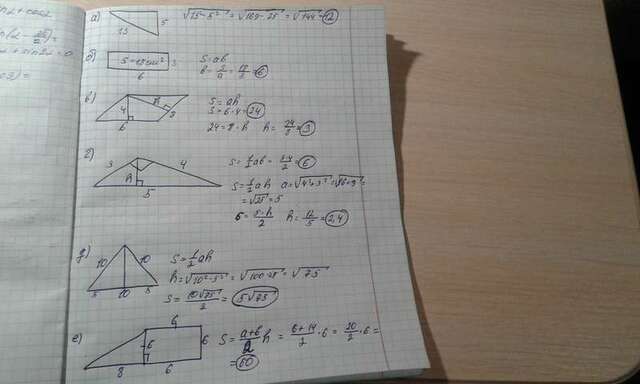 а) 5 √15²-5² = √169-25 = √144 = 12
13
б) S=18см² 3 S=ab
6 b = S/a = 18/3 = 6
в) 4 h 8 S=ah
6 S=6·4=24
24=8·h h=24/8=3
г) 3 4 S=1/2ab=3·4/2=6
h S=1/2ah a=√4²+3²=√16+9=
5 =√25=5
6=5·h/2 h=12/5=2,4
д) 10 10 S=1/2ah
h=√10²-5²=√100-25=√75
5 10 5 S=10√75/2=5√75
е) 6
6 6 S=a+b/2 h=6+14/2·6=20/2·6=
8 6 =60